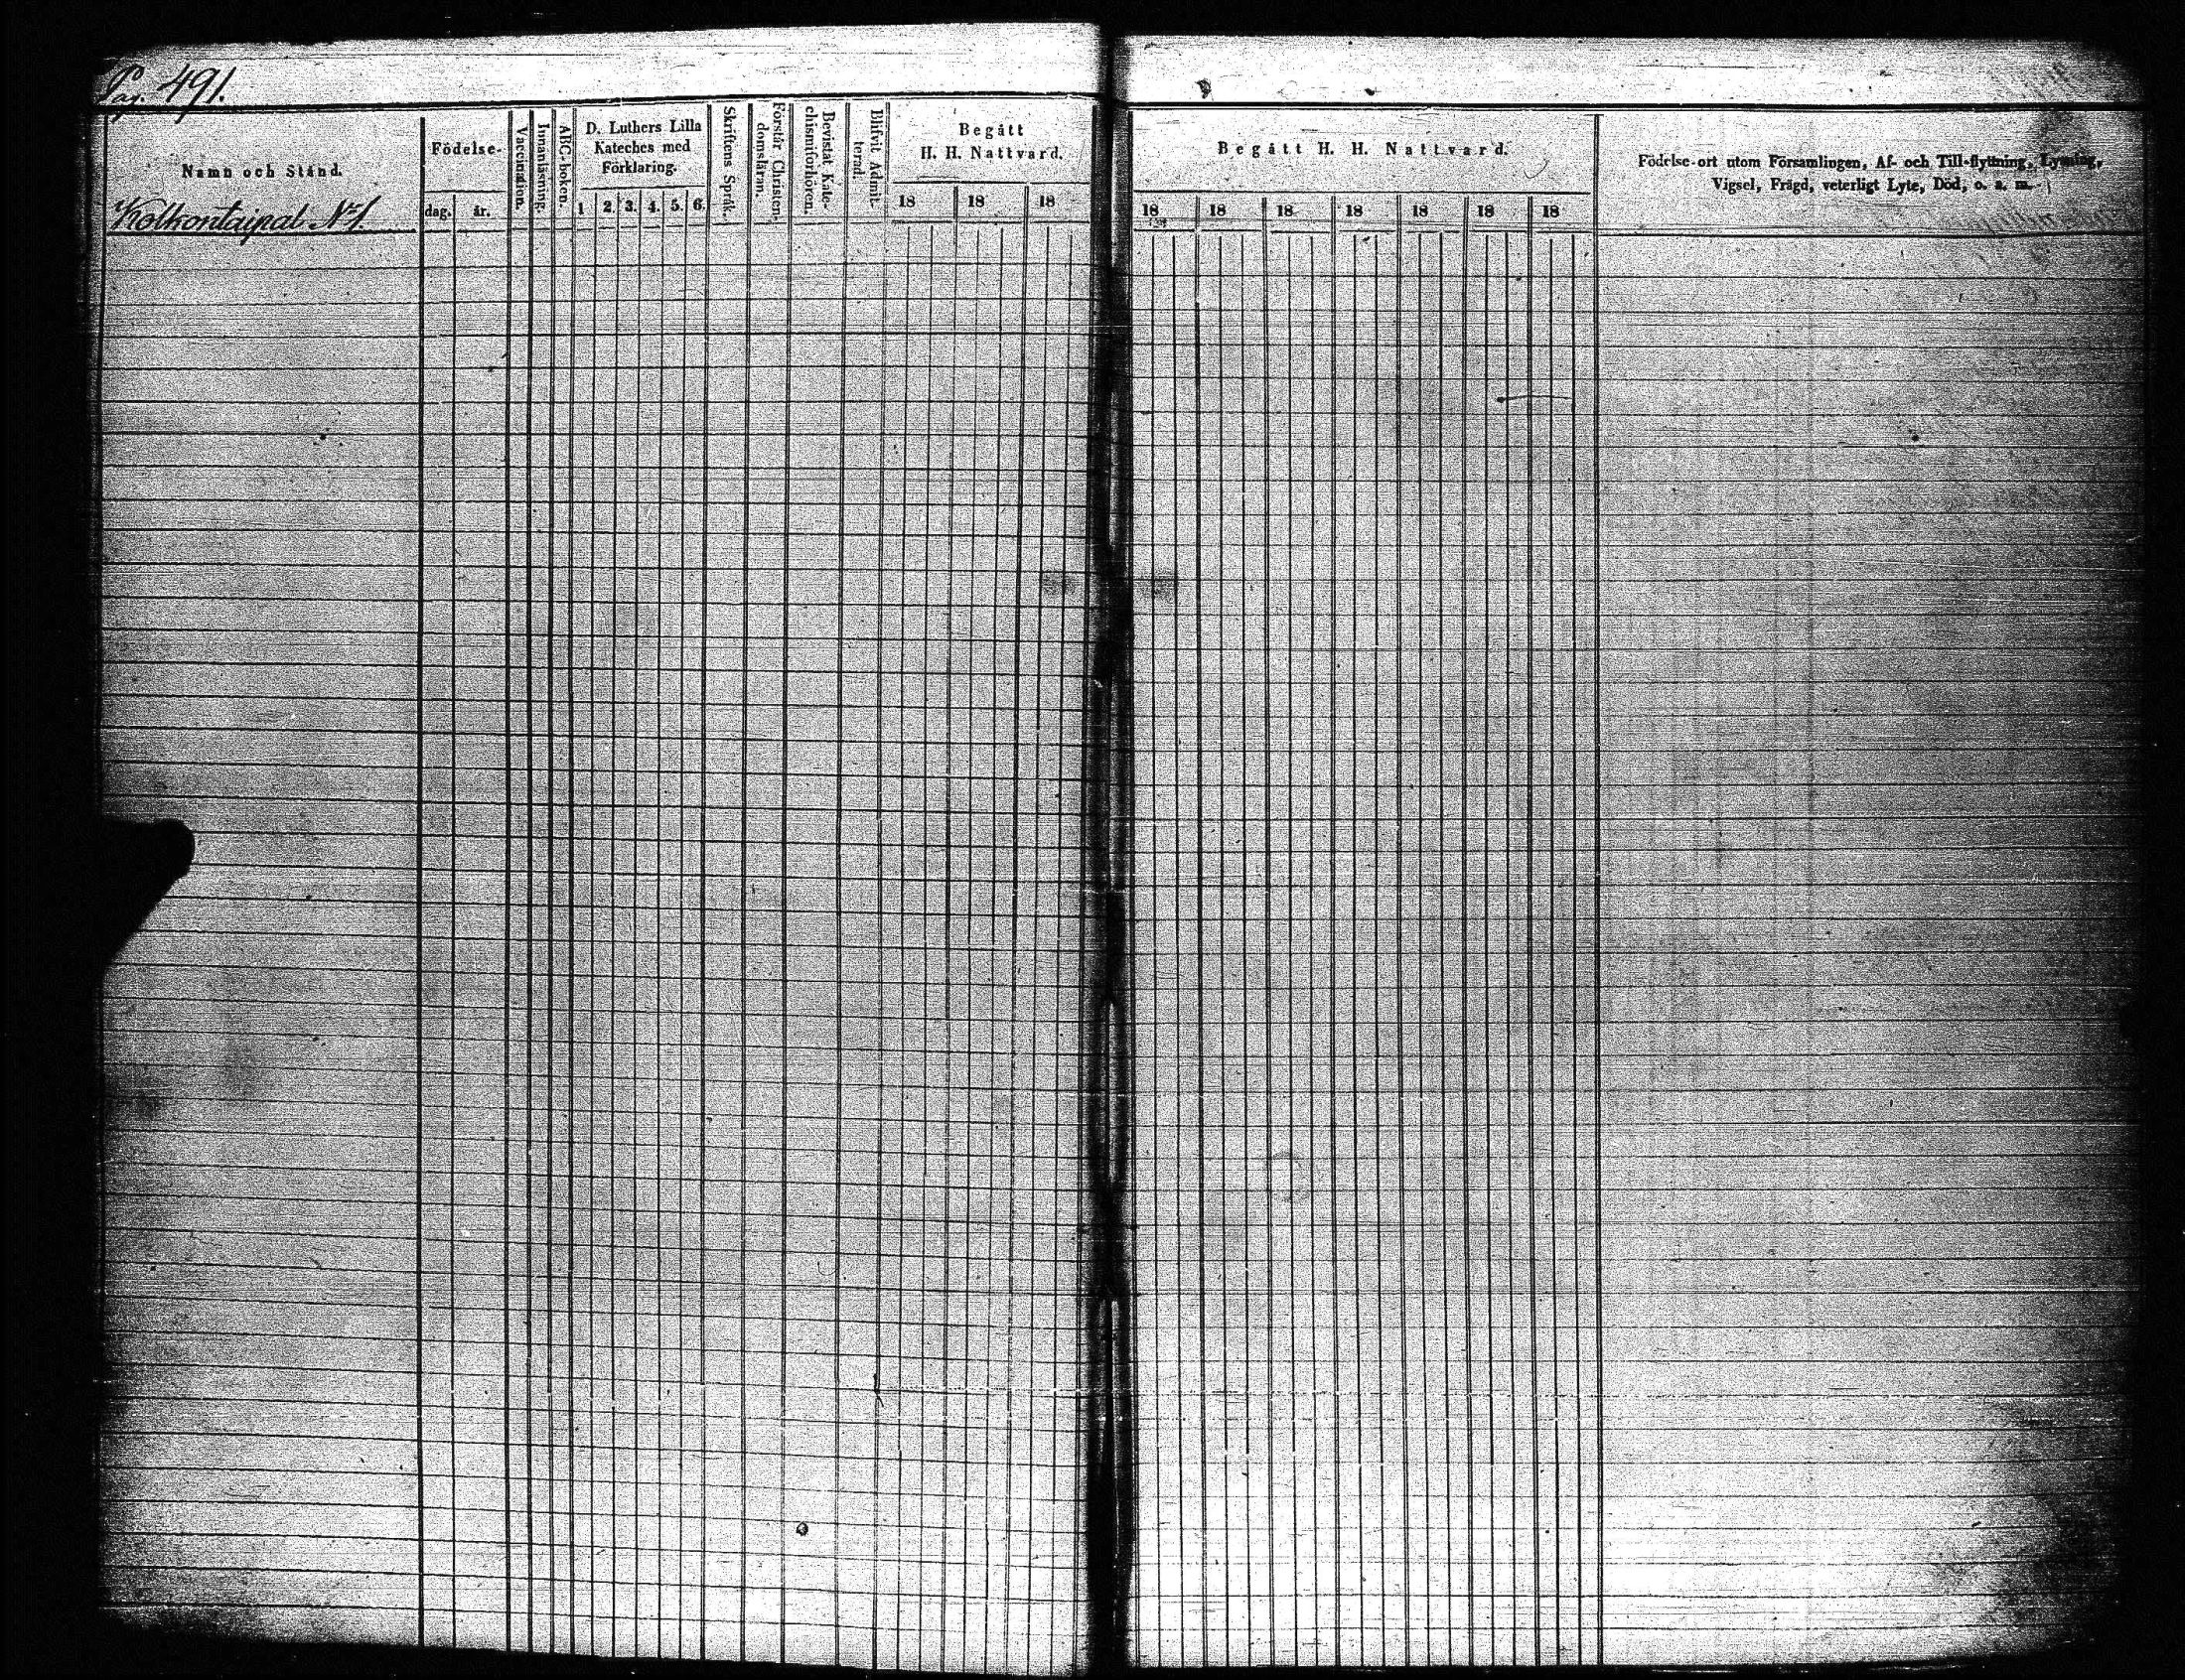 Pag. 491.
Namn och Stånd.
Kolkontaipal No 1.
Födelse-
dag. år.
Vaccination.
Innanläsning.
ABC-boken.
D. Luthers Lilla
Kateches med
Förklaring.
1 2. 3. 4. 5. 6.
Skriftens Språk.
Förstår Christen-
domsläran.
Bevistat Kate-
chismiförhören.
Blifvit Admit-
terad.
Begått
H. H. Nattvard.
18 18 18
Begått H. H. Nattvard.
18 18 18 18 18 18 18
Födelse-ort utom Församlingen, Af- och Till-flyttning, Lysning,
Vigsel, Frägd, veterligt Lyte, Död, o. s. m.